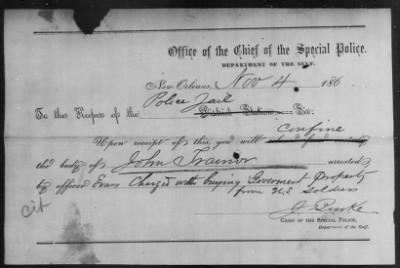 Office of the Chief of the Special Police.
DEPARTMENT OF THE GULF.
New Orleans, Nov 4 186
Police Jail
To the Keeper of the Sir:
confine
Upon receipt of this, you will
the body of John Trainor arrested
by officer Evans Charged with buying Goverment Property
from U.S Soldiers
cit
CHIEF OF THE SPECIAL POLICE,
Department of the Gulf.